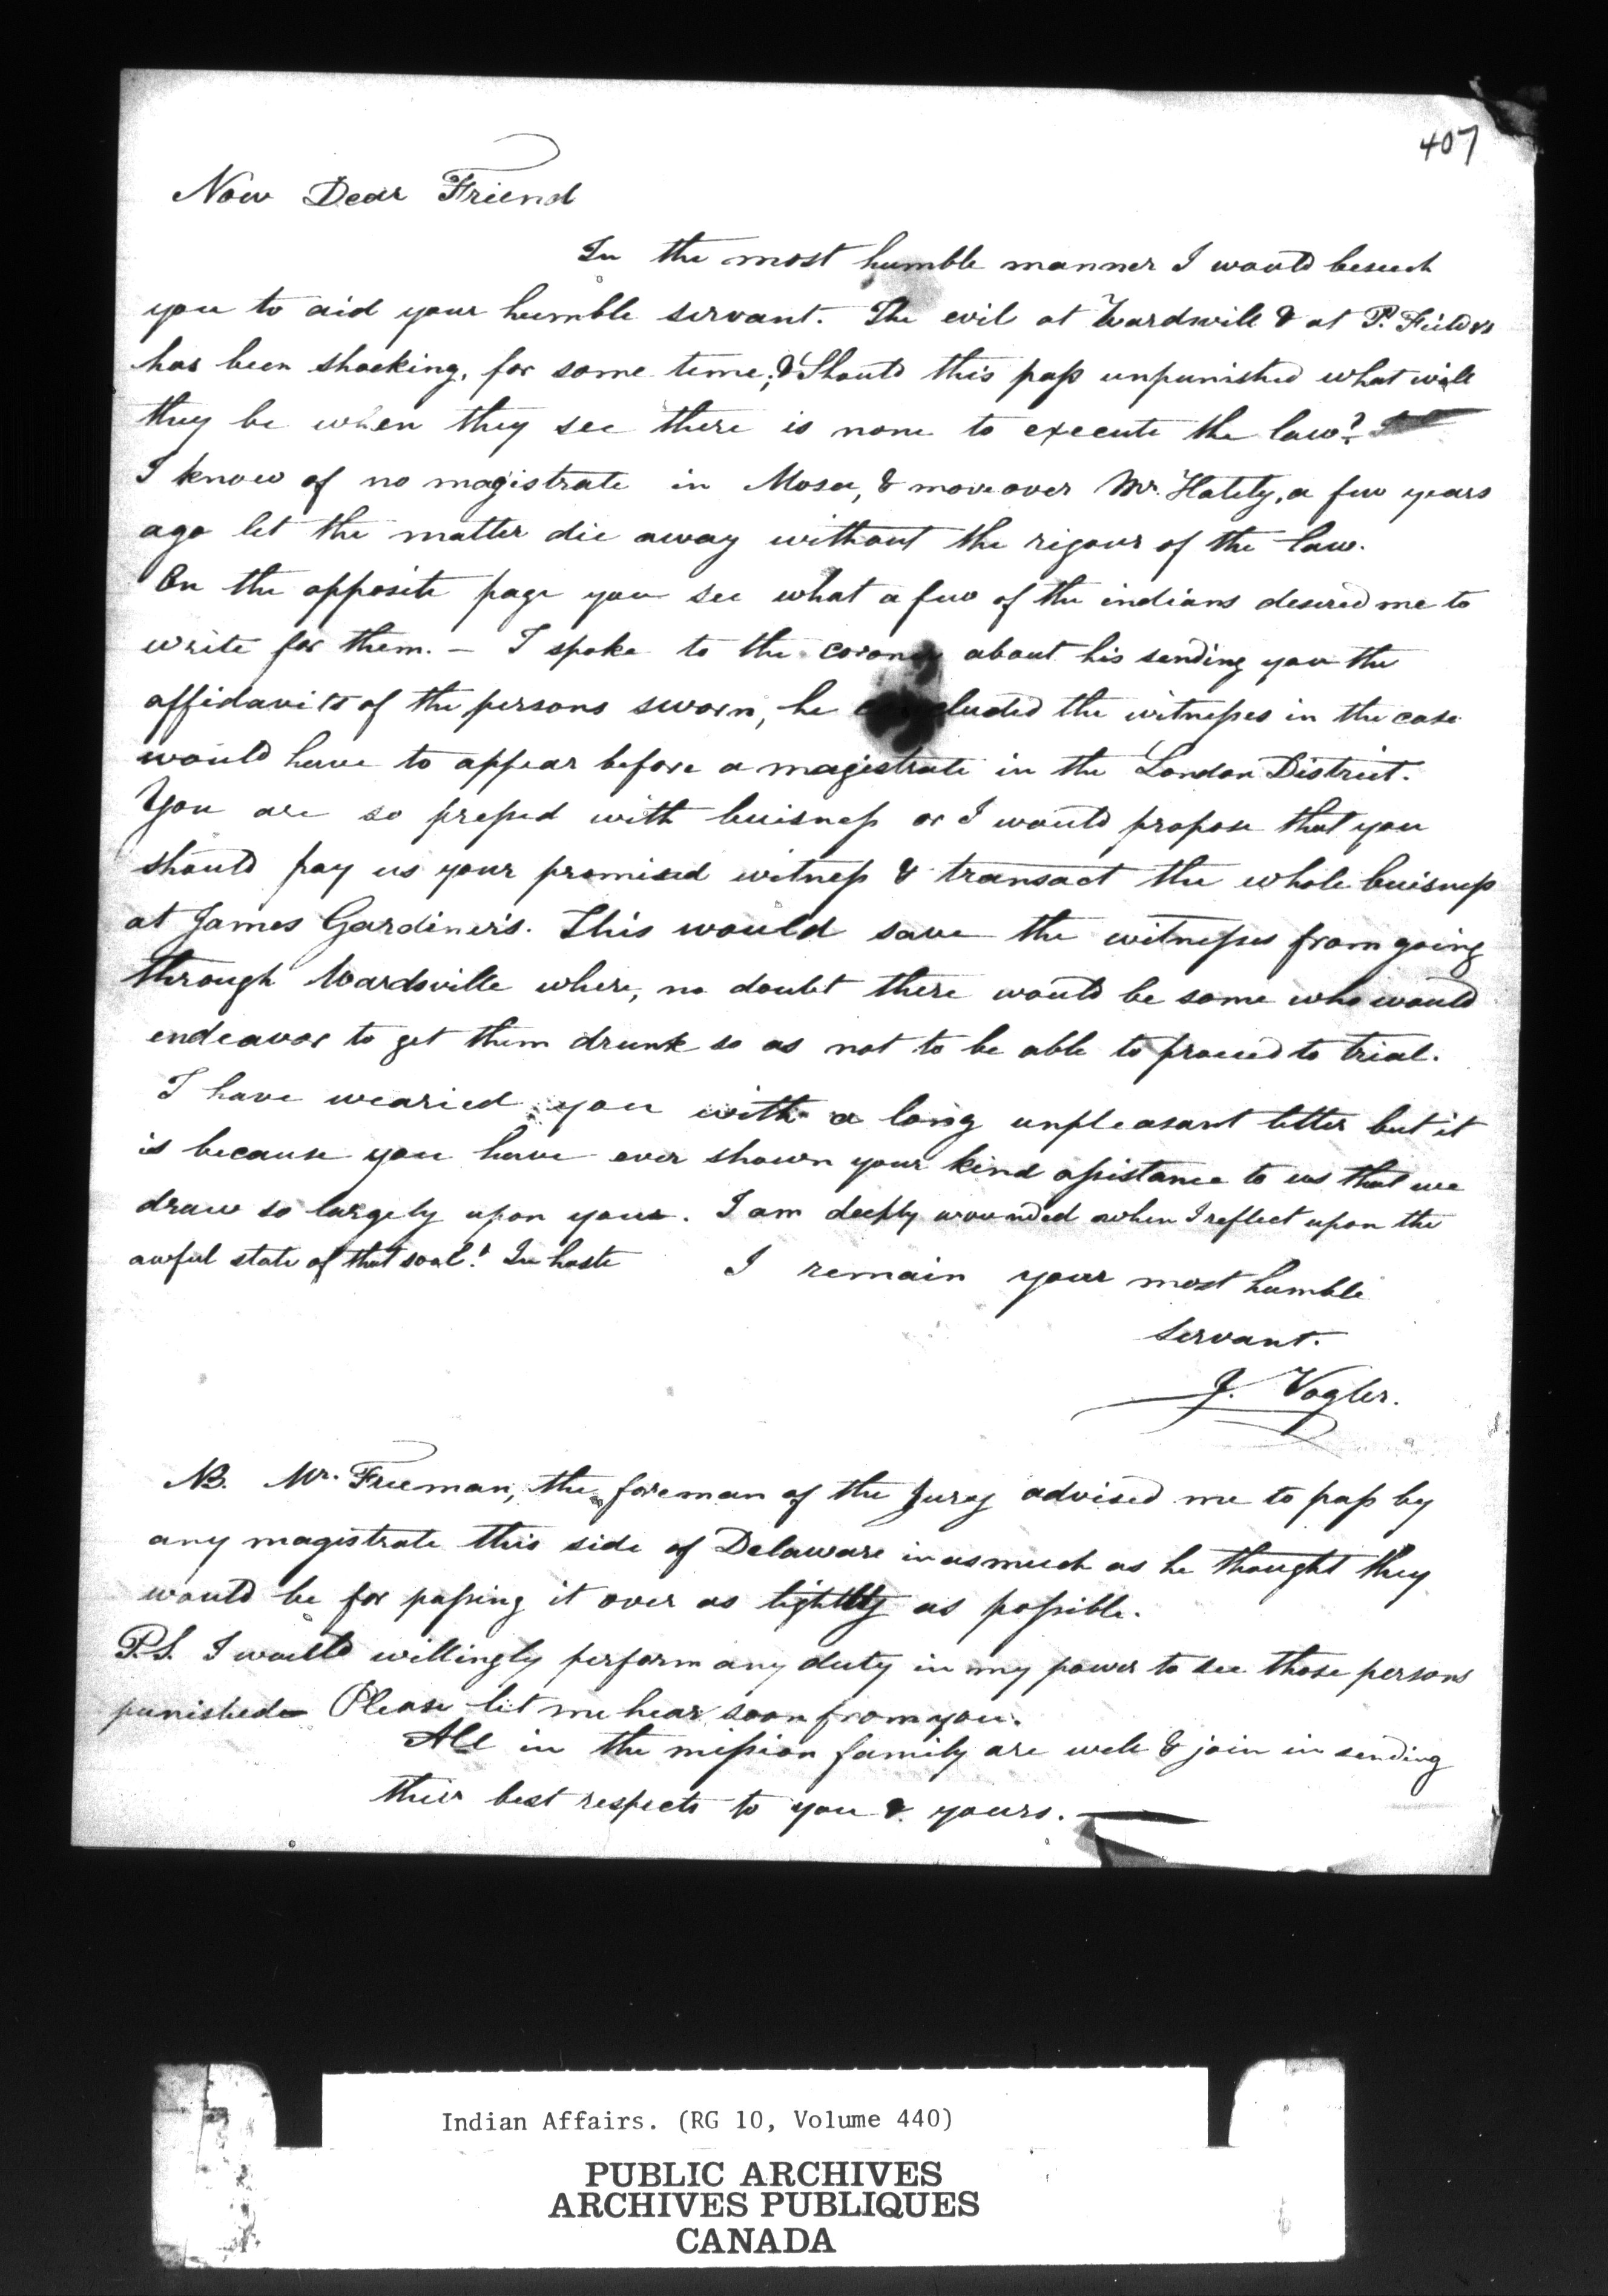 407
Now Dear Friend
In the most humble manner I would beseech
you to aid your humble servant. The evil at Wardsvill & at P. Fields
has been shocking, for some time, & Should this pass unpunished what will
they be when they see there is none to execute the law?
I know of no magistrate in Mosa, & moreover Mr. Hately, a few years
ago let the matter die away without the rigour of the law.
On the opposite page you see what a few of the indians desired me to
write for them. — I spoke to the coroner about his sending you the
affidavits of the persons sworn, he concluded the witnesses in the case
would have to appear before a magistrate in the London District.
You are so pressed with buisness or I would propose that you
should pay us your promised witness & transact the whole buisness
at James Gardiner's. This would save the witnesses from going
through Wardsville where, no doubt there would be some who would
endeavor to get them drunk so as not to be able to proceed to trial.
I have wearied you with a long unpleasant letter but it
is because you have ever shown your kind assistance to us that we
draw so largely upon yours. I am deeply wounded when I reflect upon the
awful state of that soul! In haste I remain your most humble
servant.
J. Vogler.
NB. Mr. Freeman, the foreman of the Jury advised me to pass by
any magistrate this side of Delaware inasmuch as he thought they
would be for passing it over as lightly as possible.
P.S. I would willingly perform any duty in my power to see those persons
punished— Please let me hear soon from you.
All in the mission family are well & join in sending
their best respects to you & yours. —
Indian Affairs. (RG 10, Volume 440)
PUBLIC ARCHIVES
ARCHIVES PUBLIQUES
CANADA